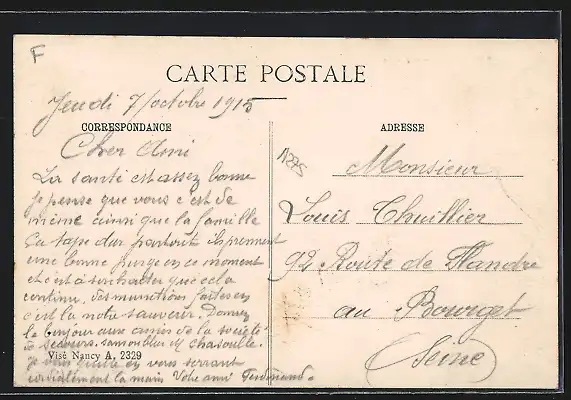 F
CARTE POSTALE
Jeudi 7/octobre 1915
CORRESPONDANCE
Cher Ami
La santé est assez bonne
je pense que vous c'est de
même ainsi que la famille
Ça tape dur partout ils prennent
une bonne purge en ce moment
et c'est à souhaiter que cela
continu, des munitions faites en
c'est la note sauveur. Donnez
le bonjour aux amis de la société
de secours, sans oublier Mr
je vous quitte en vous serrant
cordialement la main Votre ami Ferdinand.
Visé Nancy A, 2329
ADRESSE
Monsieur
Louis Thuillier
92 Route de Flandre
au Bourget
(Seine)